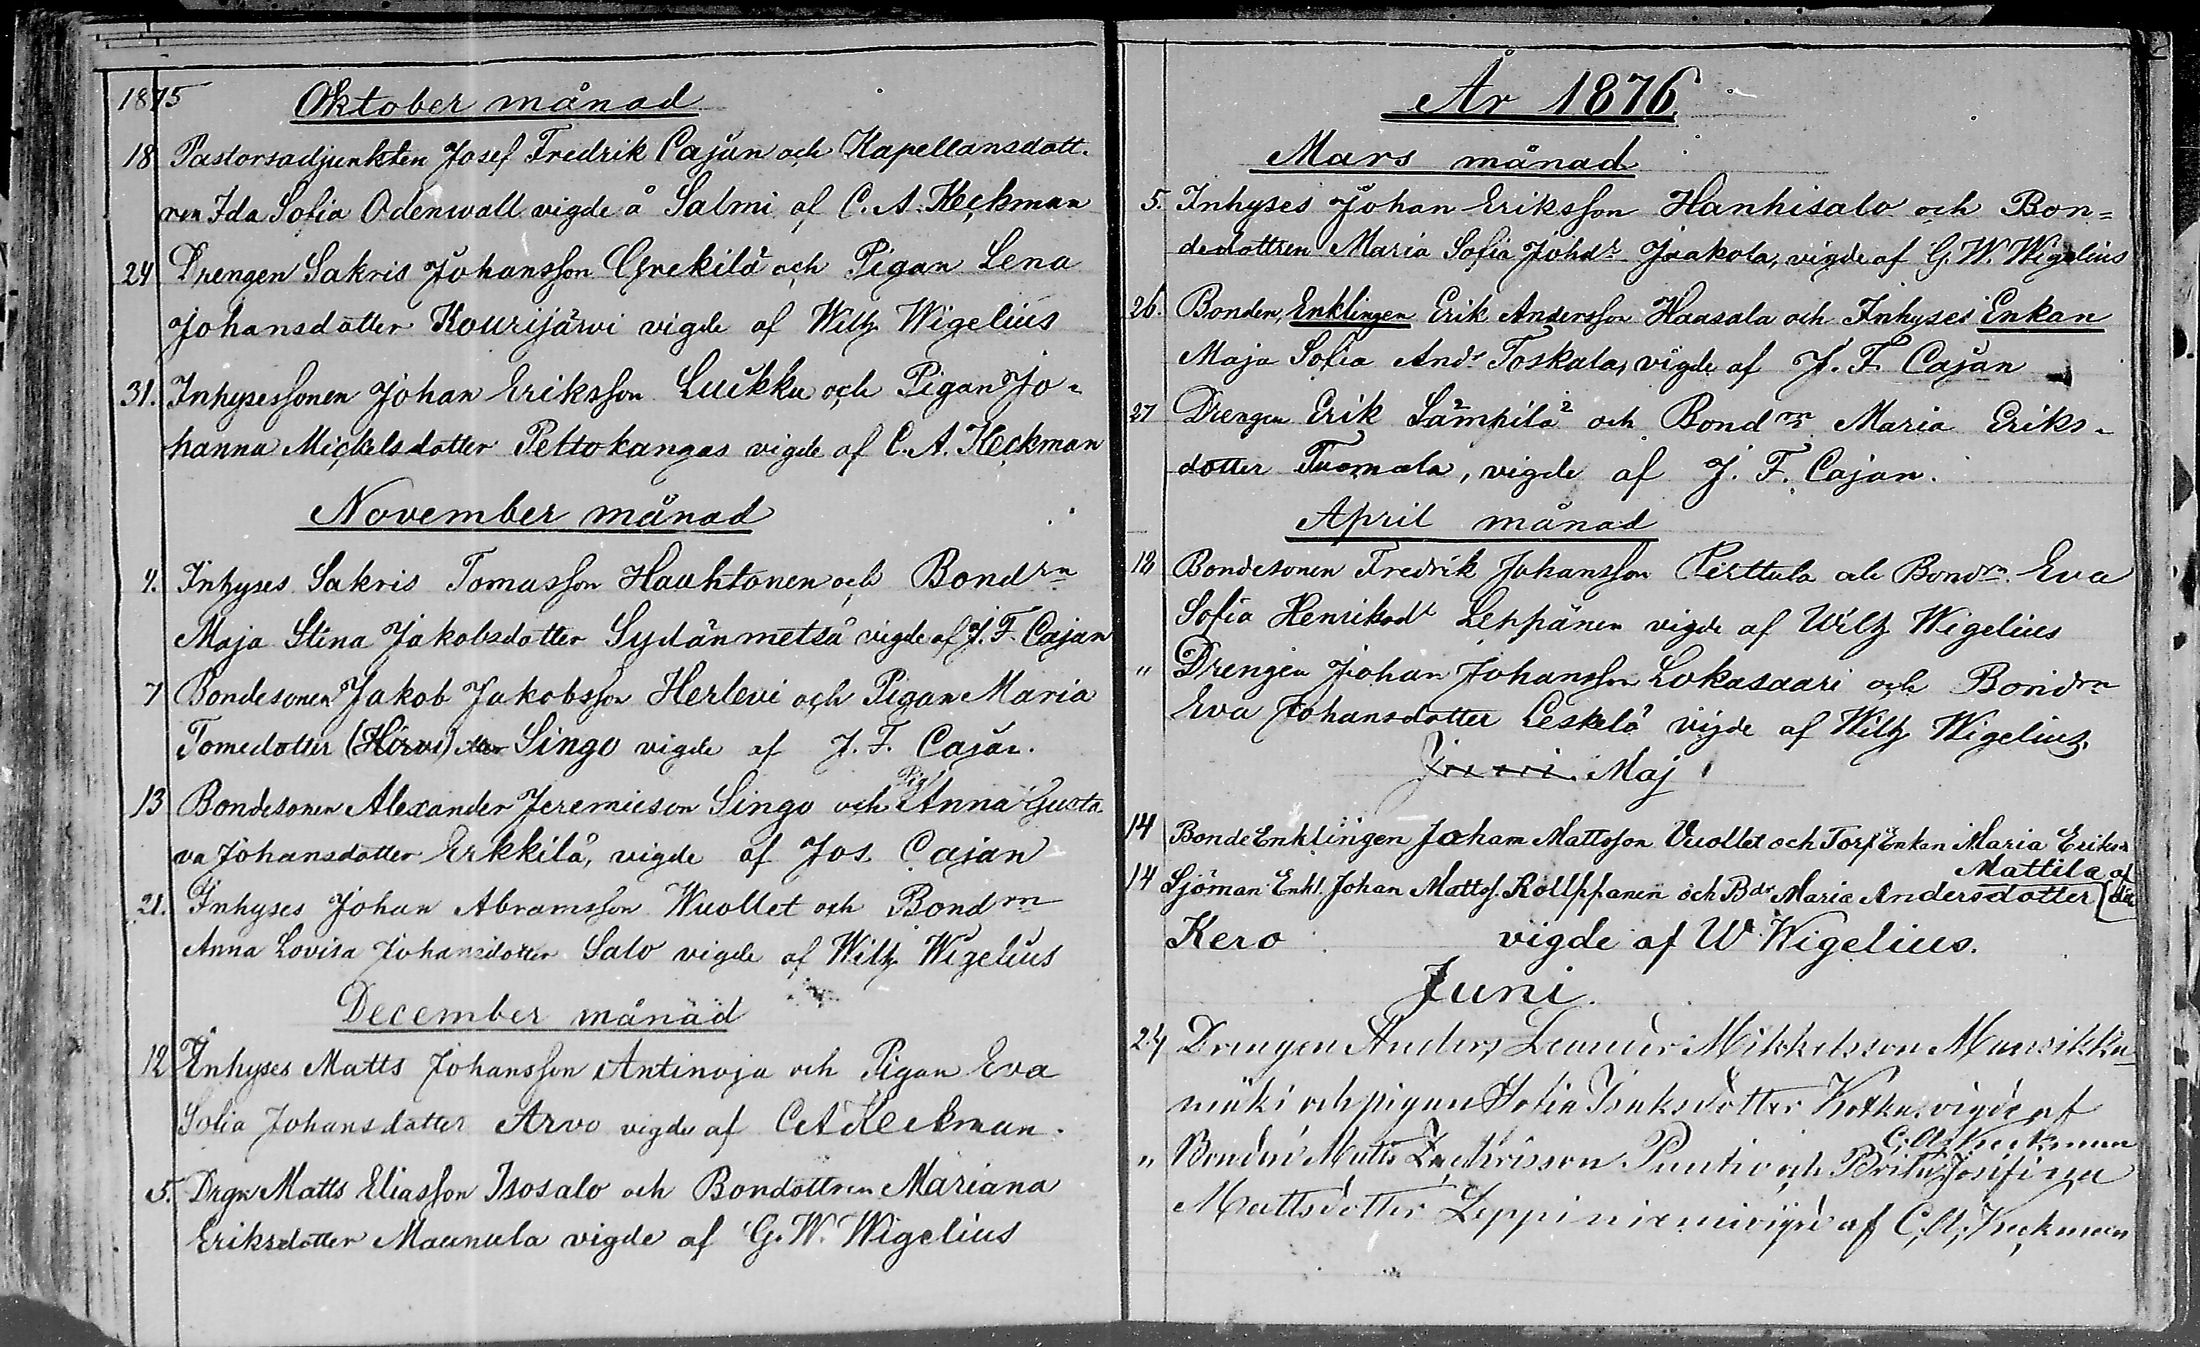 1875 Oktober månad
18 Pastorsadjunkten Josef Fredrik Cajan och Kapellansdott-
ren Ida Sofia Odenwall vigde å Salmi af C. A. Heckman
24 Drengen Sakris Johansson Grekilä och Pigan Lena
Johansdotter Kourijärvi vigde af Wilh Wigelius
31. Inhysessonen Johan Eriksson Luikku och Pigan Jo-
hanna Mickelsdotter Pettokangas vigde af C. A. Heckman
November månad
4. Inhyses Sakris Tomasson Hauhtonen och Bondrn
Maja Stina Jakobsdotter Sydänmetsä vigde af J. F. Cajan
7 Bondesonen Jakob Jakobsson Herlevi och Pigan Maria
Tomedotter (Hirvi) Singo vigde af J. F. Cajan.
13 Bondesonen Alexander Jeremieson Singo och Pig Anna Gusta-
va Johansdotter Erkkilä, vigde af Jos. Cajan
21. Inhyses Johan Abramsson Wuollet och Bondrn
Anna Lovisa Johansdotter Salo vigde af Wilh Wigelius
December månad
12 Inhyses Matts Johansson Antinoja och Pigan Eva
Sofia Johansdotter Arvo vigde af C A Heckman.
5. Drgn Matts Eliasson Isosalo och Bondottren Mariana
Eriksdotter Maunula vigde af G. W. Wigelius
År 1876.
Mars månad
5. Inhyses Johan Eriksson Hanhisalo och Bon=
dedottren Maria Sofia Johdr Jaakola, vigde af G. W. Wigelius
26. Bonden, Enklingen Erik Andersson Haasala och Inhyses Enkan
Maja Sofia Andr Toskala, vigde af J. F. Cajan
27 Drengen Erik Sämpilä och Bondrn Maria Eriks-
dotter Tuomala, vigde af J. F. Cajan.
April månad
18 Bondesonen Fredrik Johansson Perttula och Bondrn Eva
Sofia Henriksdr Leppänen vigde af Wilh Wigelius
" Drengen Johan Johansson Lokasaari och Bondrn
Eva Johansdotter Leskelä vigde af Wilh Wigelius.
Maj
14 Bonde Enklingen Joham Mattsson Vuollet och Torp Enkan Maria Eriksdr
Mattila af
14 Sjöman Enkl. Johan Mattss. Rollppanen och Bdr Maria Andersdotter
Kero vigde af W Wigelius.
Juni.
24 Drengen Anders Leander Mikkelsson Mansikka-
mäki och pigan Sofia Isaksdotter Kotka vigde af
C. A. Heckman
" Bonden Matts Fredriksson Puntio och Brita Josifina
Mattsdotter Leppiniemi vigd af C. A. Heckman